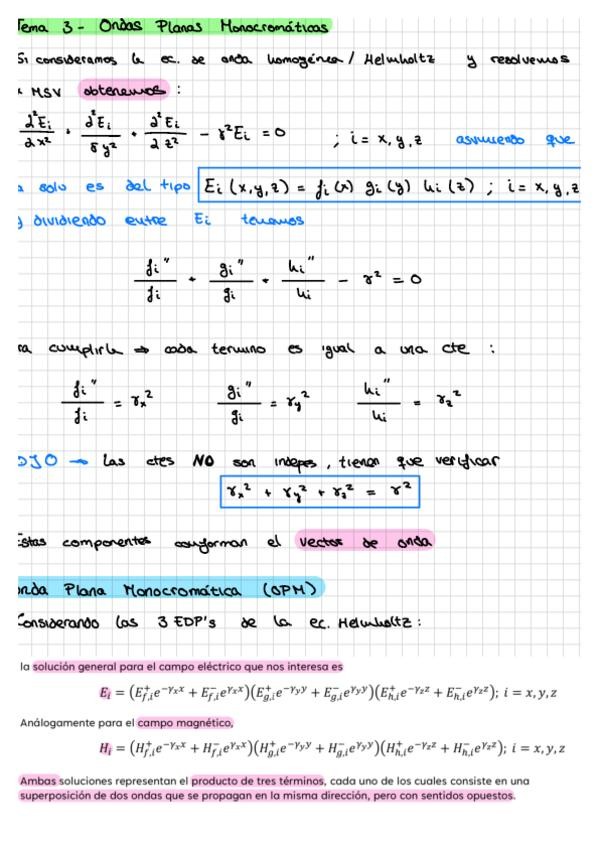 Tema 3 - Ondas Planas Monocromáticas
Si consideramos la ec. de onda homogénea / Helmholtz y resolvemos
x MSV obtenemos :
∂²Ei/∂x² + ∂²Ei/δy² + ∂²Ei/∂z² - γ²Ei = 0 ; i = x, y, z asumiendo que
a solo es del tipo Ei (x,y,z) = fi (x) gi (y) hi (z) ; i = x, y, z
y dividiendo entre Ei tenemos
fi''/fi + gi''/gi + hi''/hi - γ² = 0
ra cumplirla → cada termino es igual a una cte :
fi''/fi = γx² gi''/gi = γy² hi''/hi = γz²
OJO → las ctes NO son indeps, tienen que verificar
γx² + γy² + γz² = γ²
Estas componentes conforman el vector de onda
onda Plana Monocromática (OPM)
Considerando las 3 EDP's de la ec. Helmholtz :
la solución general para el campo eléctrico que nos interesa es
Ei = (E⁺f,i e^−γx x + E⁻f,i e^γx x)(E⁺g,i e^−γy y + E⁻g,i e^γy y)(E⁺h,i e^−γz z + E⁻h,i e^γz z); i = x, y, z
Análogamente para el campo magnético,
Hi = (H⁺f,i e^−γx x + H⁻f,i e^γx x)(H⁺g,i e^−γy y + H⁻g,i e^γy y)(H⁺h,i e^−γz z + H⁻h,i e^γz z); i = x, y, z
Ambas soluciones representan el producto de tres términos, cada uno de los cuales consiste en una
superposición de dos ondas que se propagan en la misma dirección, pero con sentidos opuestos.